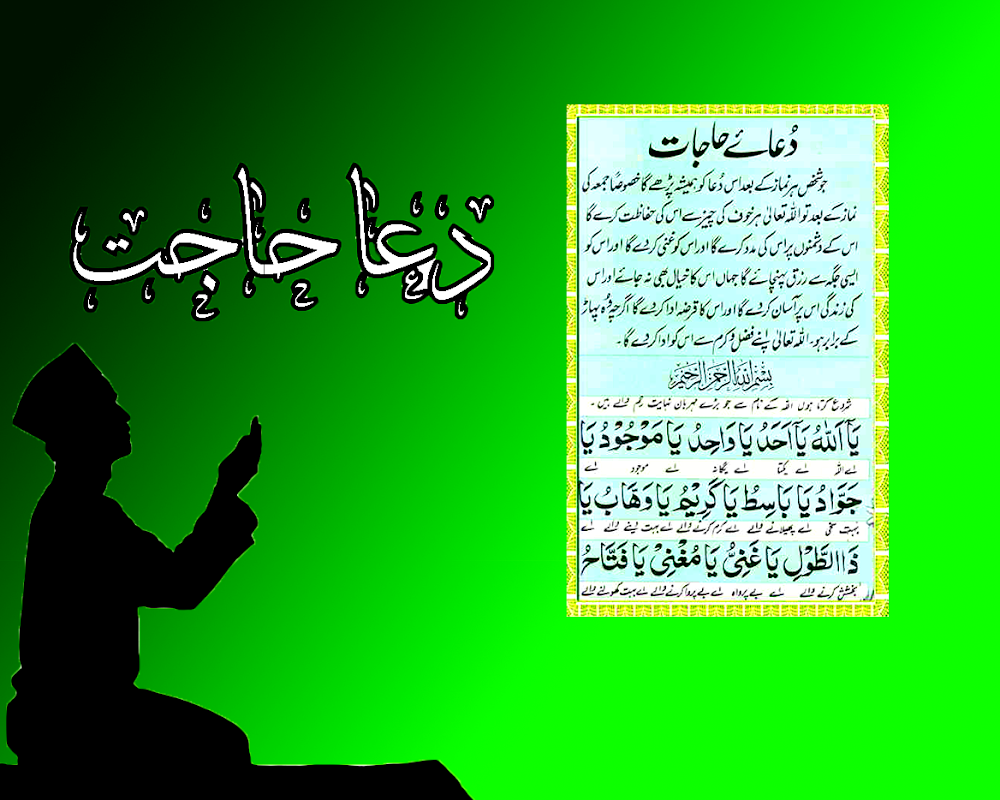 دعا حاجت
دُعائے حاجات
جو شخص ہر نماز کے بعد اس دُعا کو ہمیشہ پڑھے گا خصوصًا جمعہ کی
نماز کے بعد تو اللہ تعالیٰ ہر خوف کی چیز سے اس کی حفاظت کرے گا
اس کے دشمنوں پر اس کی مدد کرے گا اور اس کو غنی کر دے گا اور اس کو
ایسی جگہ سے رزق پہنچائے گا جہاں اس کا خیال بھی نہ جائے اور اس
کی زندگی اس پر آسان کر دے گا اور اس کا قرضہ ادا کر دے گا اگرچہ وہ پہاڑ
کے برابر ہو۔ اللہ تعالیٰ اپنے فضل و کرم سے اس کو ادا کر دے گا۔
بِسْمِ اللّٰهِ الرَّحْمٰنِ الرَّحِيْمِ
شروع کرتا ہوں اللہ کے نام سے جو بڑے مہربان نہایت رحم والے ہیں۔
يَآ اَللّٰهُ يَآ اَحَدُ يَا وَاحِدُ يَا مَوْجُوْدُ يَا
اے اللہ اے یکتا اے یگانہ اے موجود اے
جَوَّادُ يَا بَاسِطُ يَا كَرِيْمُ يَا وَهَّابُ يَا
بہت سخی اے پھیلانے والے اے کرم کرنے والے اے بہت دینے والے اے
ذَا الطَّوْلِ يَا غَنِيُّ يَا مُغْنِيْ يَا فَتَّاحُ
بخشش کرنے والے اے بے پرواہ اے بے پروا کرنے والے اے بہت کھولنے والے